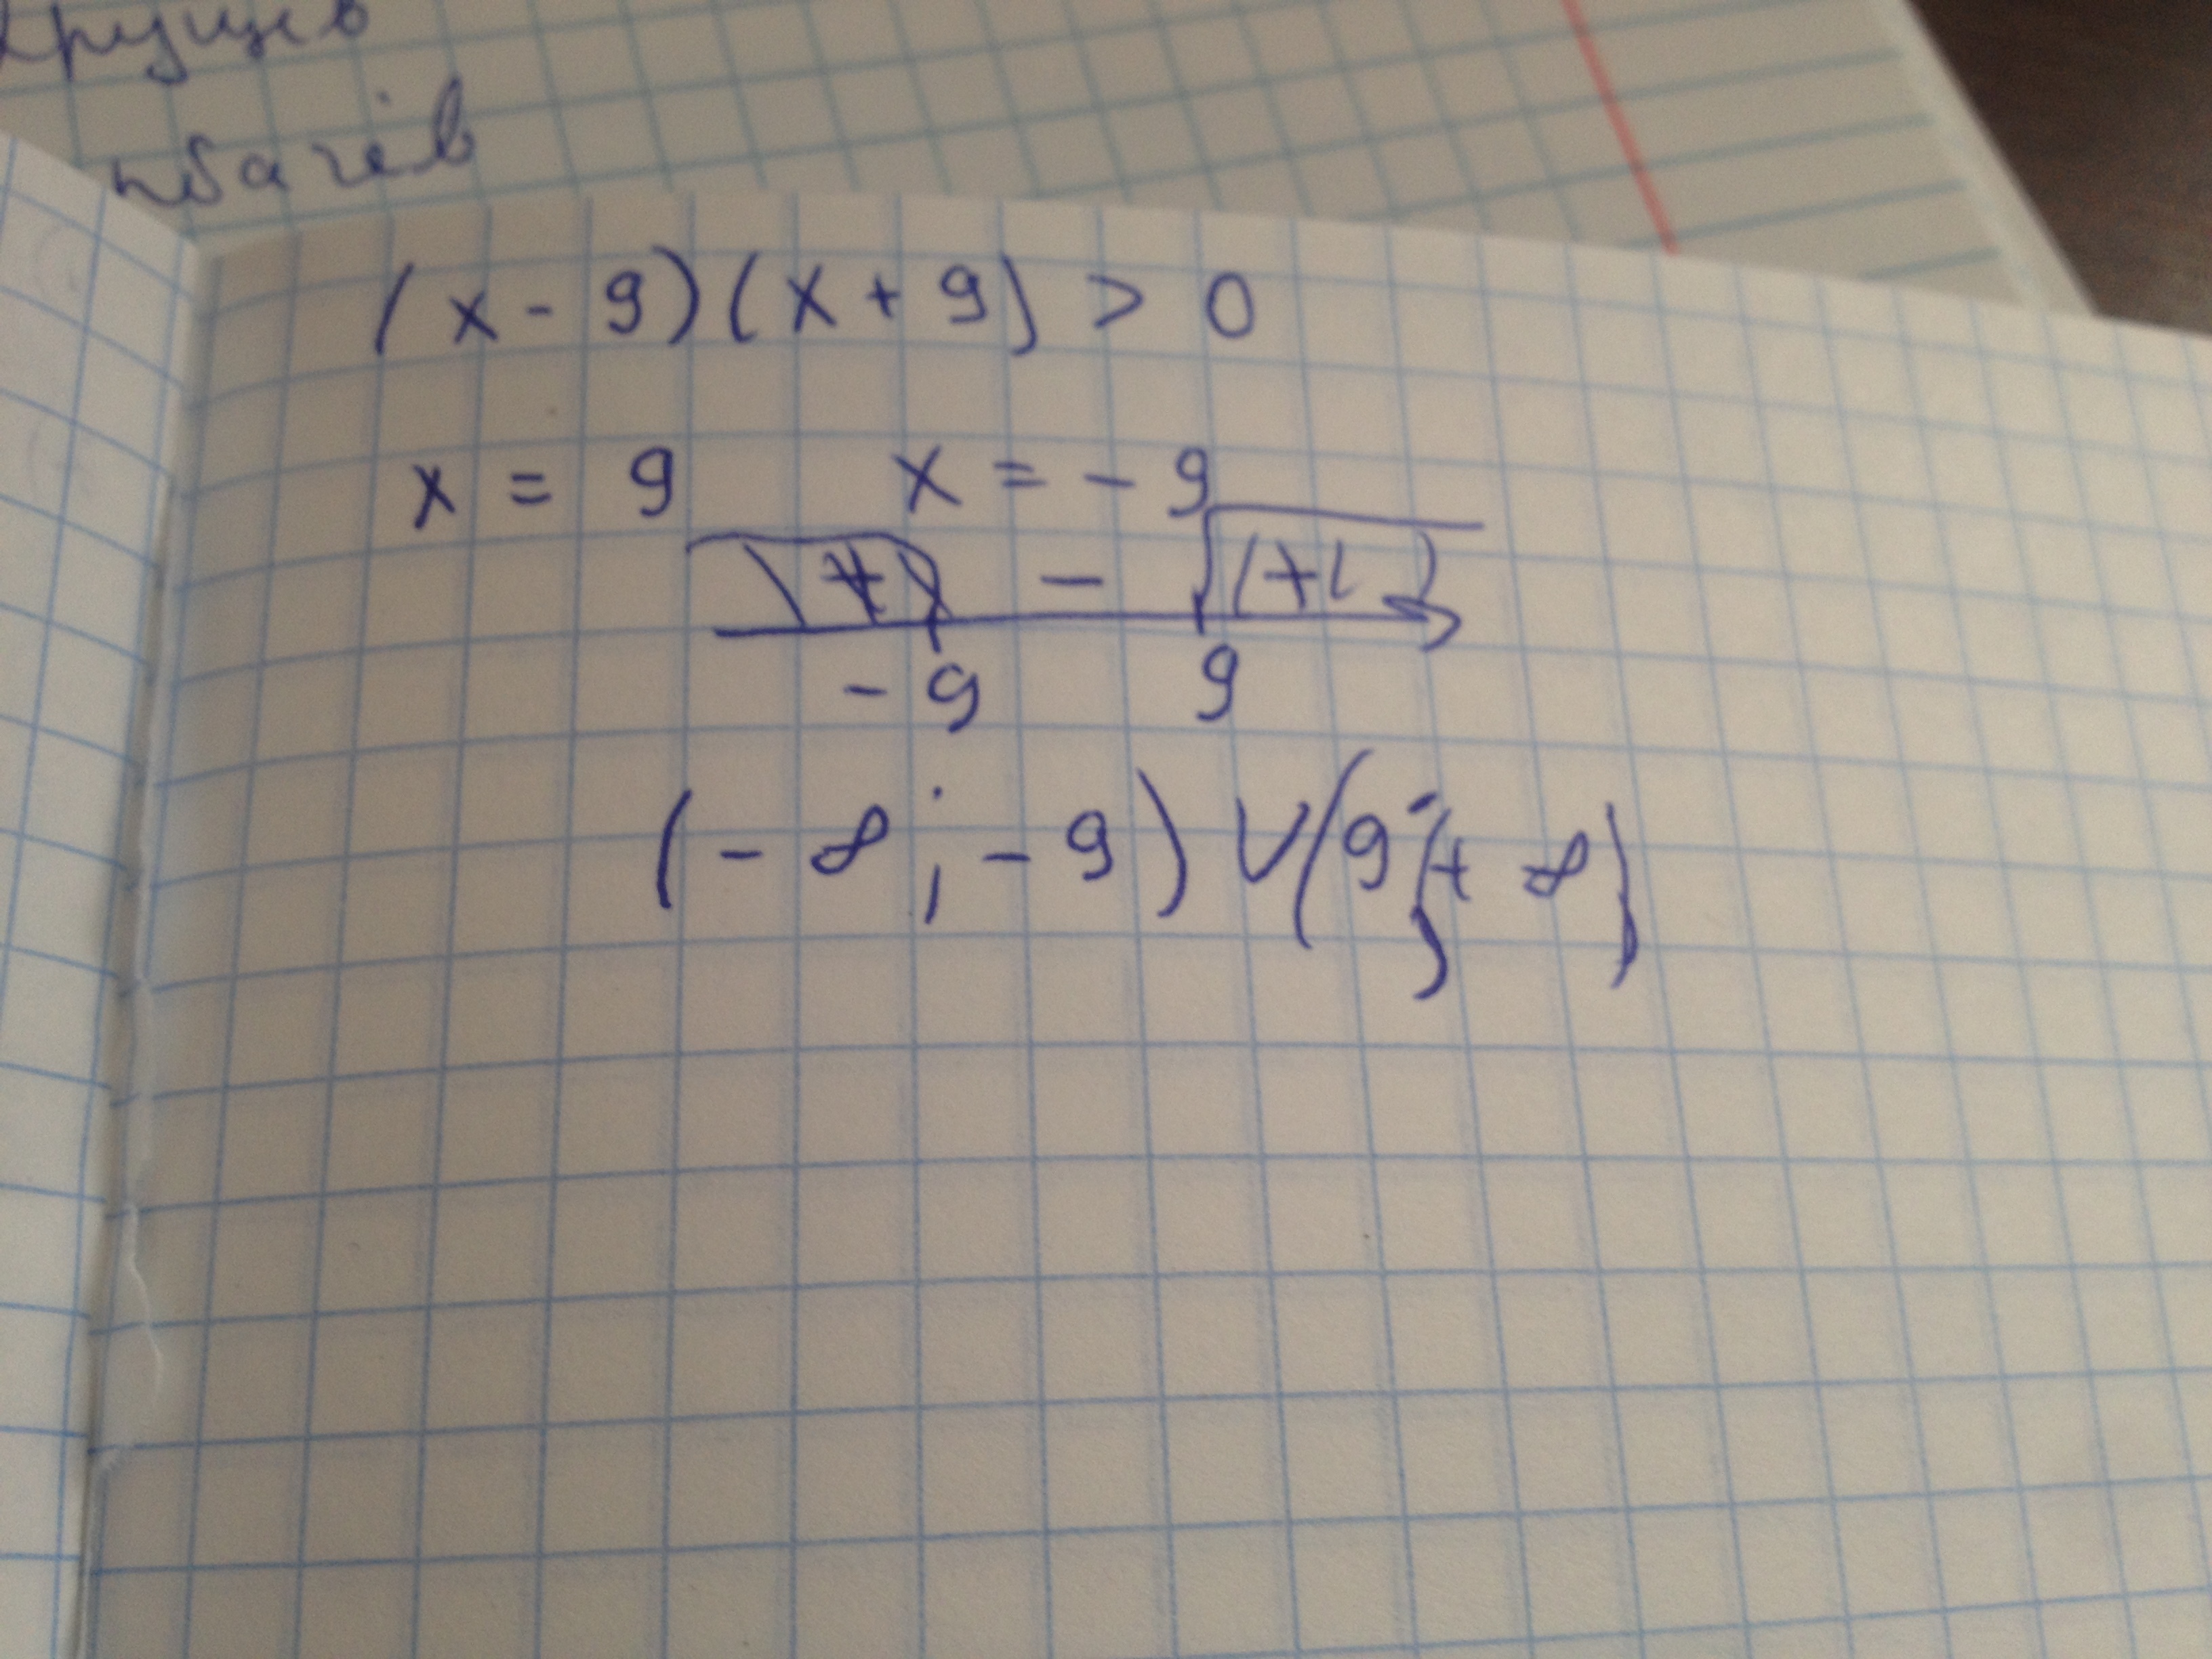 (x - 9)(x + 9) > 0
x = 9 x = - 9
+ - +
- 9 9
(- ∞ ; - 9) ∪ (9 ; + ∞)